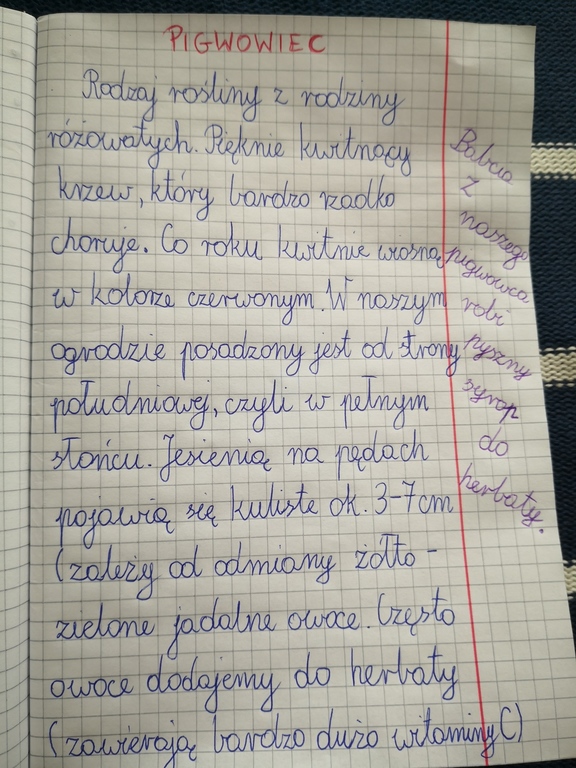 PIGWOWIEC
Rodzaj rośliny z rodziny
różowatych. Pięknie kwitnący
krzew, który bardzo rzadko
choruje. Co roku kwitnie wiosną
w kolorze czerwonym. W naszym
ogrodzie posadzony jest od strony
południowej, czyli w pełnym
słońcu. Jesienią na pędach
pojawią się kuliste ok. 3-7cm
(zależy od odmiany żółto -
zielone jadalne owoce. Często
owoce dodajemy do herbaty
(zawierają bardzo dużo witaminy C)
Babcia
z
naszego
pigwowca
robi
pyszny
syrop
do
herbaty.